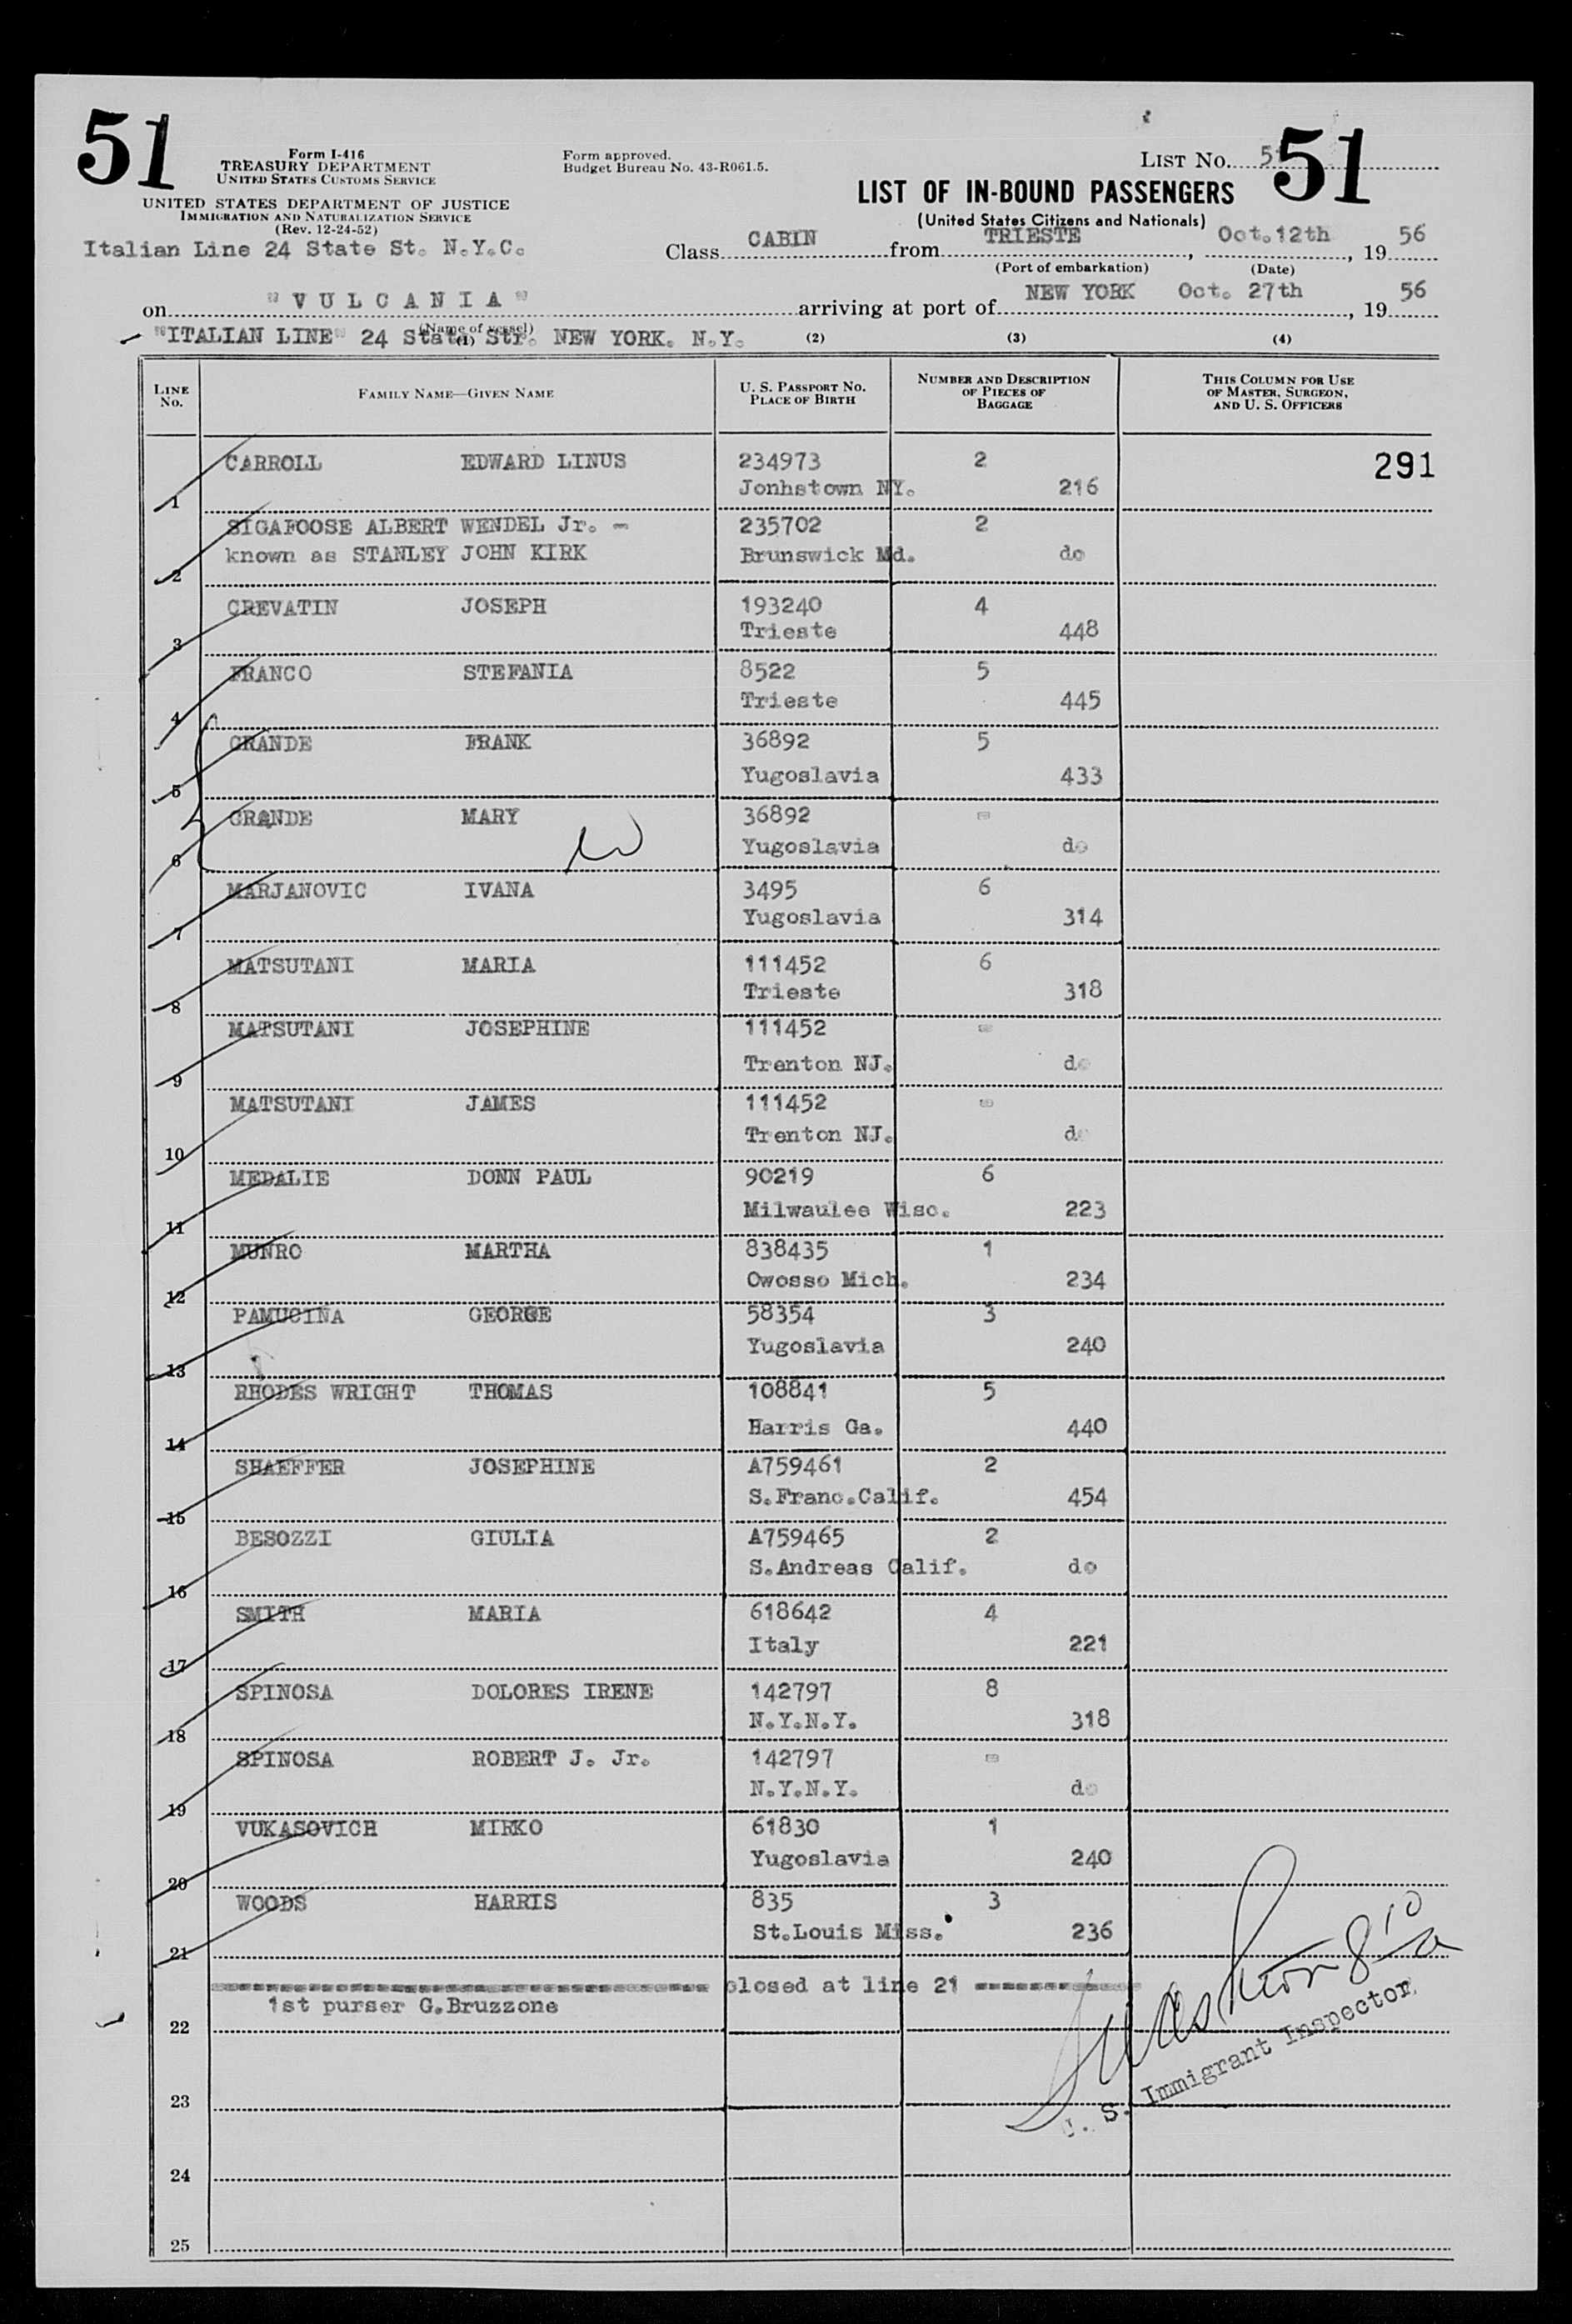 51
Form I-416
TREASURY DEPARTMENT
UNITED STATES CUSTOMS SERVICE
UNITED STATES DEPARTMENT OF JUSTICE
IMMIGRATION AND NATURALIZATION SERVICE
(Rev. 12-24-52)
Form approved.
Budget Bureau No. 43-R061.5.
LIST NO. 51
51
LIST OF IN-BOUND PASSENGERS
(United States Citizens and Nationals)
Italian Line 24 State St. N.Y.C.
Class CABIN from TRIESTE, Oct.12th, 1956
(Port of embarkation) (Date)
on "VULCANIA" arriving at port of NEW YORK Oct. 27th, 1956
(Name of vessel)
"ITALIAN LINE" 24 State Str. NEW YORK. N.Y.
(1) (2) (3) (4)
LINE NO. FAMILY NAME—GIVEN NAME U. S. PASSPORT NO. PLACE OF BIRTH NUMBER AND DESCRIPTION OF PIECES OF BAGGAGE THIS COLUMN FOR USE OF MASTER, SURGEON, AND U. S. OFFICERS
CARROLL EDWARD LINUS 234973 2 291
1 Jonhstown NY. 216
SIGAFOOSE ALBERT WENDEL Jr. - 235702 2
2 known as STANLEY JOHN KIRK Brunswick Md. do
CREVATIN JOSEPH 193240 4
3 Trieste 448
FRANCO STEFANIA 8522 5
4 Trieste 445
GRANDE FRANK 36892 5
5 Yugoslavia 433
GRANDE MARY 36892 -
6 Yugoslavia do
MARJANOVIC IVANA 3495 6
7 Yugoslavia 314
MATSUTANI MARIA 111452 6
8 Trieste 318
MATSUTANI JOSEPHINE 111452 -
9 Trenton NJ. do
MATSUTANI JAMES 111452 -
10 Trenton NJ. do
MEDALIE DONN PAUL 90219 6
11 Milwaulee Wisc. 223
MUNRO MARTHA 838435 1
12 Owosso Mich. 234
PAMUCINA GEORGE 58354 3
13 Yugoslavia 240
RHODES WRIGHT THOMAS 108841 5
14 Harris Ga. 440
SHAEFFER JOSEPHINE A759461 2
15 S.Franc.Calif. 454
BESOZZI GIULIA A759465 2
16 S.Andreas Calif. do
SMITH MARIA 618642 4
17 Italy 221
SPINOSA DOLORES IRENE 142797 8
18 N.Y.N.Y. 318
SPINOSA ROBERT J. Jr. 142797 -
19 N.Y.N.Y. do
VUKASOVICH MIRKO 61830 1
20 Yugoslavia 240
WOODS HARRIS 835 3
21 St.Louis Miss. 236
closed at line 21
1st purser G.Bruzzone
22
U. S. Immigrant Inspector
23
24
25